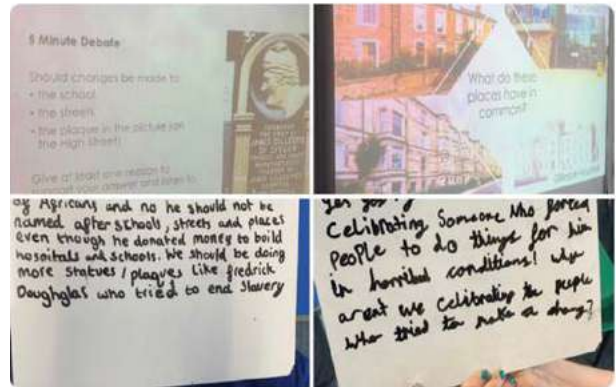 5 Minute Debate
Should changes be made to
• the school
• the streets
• the plaque in the picture (on
the High Street)
Give at least one reason to
support your answer and listen to
What do these
places have in
common?
of Africans and no he should not be
named after schools, streets and places
even though he donated money to build
hospitals and schools. We should be doing
more statues/plaques like fredrick
Doughglas who tried to end slavery
Celibrating Someone who forced
people to do things for him
in horribal conditions! why
arent we celibrating the people
who tried to make a change?